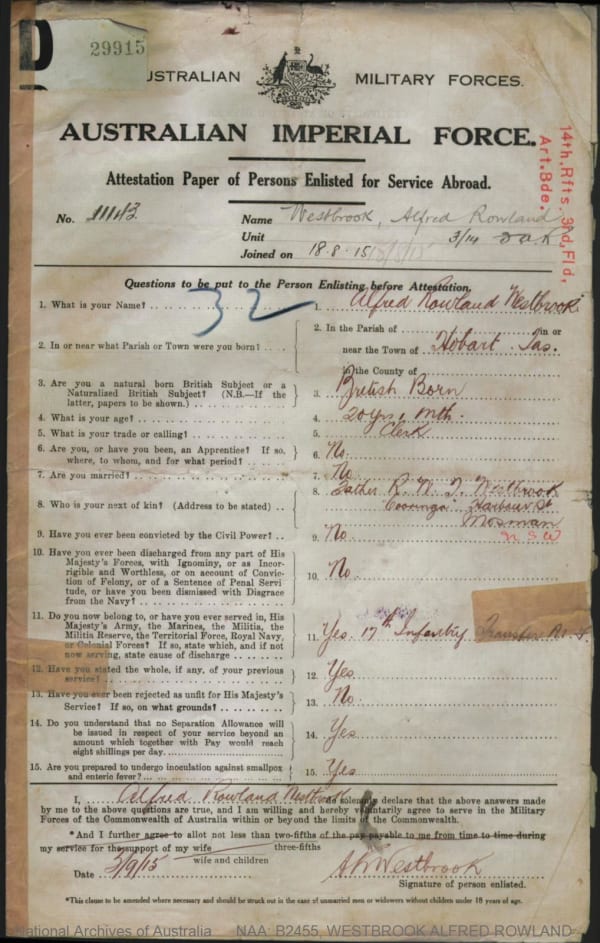 D
29915
USTRALIAN MILITARY FORCES.
AUSTRALIAN IMPERIAL FORCE.
14th. Rfts. 3rd, Fld,
Art. Bde.
Attestation Paper of Persons Enlisted for Service Abroad.
No. 11143
Name Westbrook, Alfred Rowland
Unit 3/14 D.A.K
Joined on 18.8.15
Questions to be put to the Person Enlisting before Attestation.
32
1. What is your Name? 1. Alfred Rowland Westbrook
2. In or near what Parish or Town were you born? 2. In the Parish of in or
near the Town of Hobart Tas.
in the County of
3. Are you a natural born British Subject or a
Naturalized British Subject? (N.B.—If the
latter, papers to be shown.) 3. British Born
4. What is your age? 4. 20 yrs, 1 Mth.
5. What is your trade or calling? 5. Clerk
6. Are you, or have you been, an Apprentice? If so,
where, to whom, and for what period? 6. No.
7. Are you married? 7. No
8. Who is your next of kin? (Address to be stated) 8. Father R. W. T. Westbrook
Harbour St
Mosman
N S W
9. Have you ever been convicted by the Civil Power? 9. No
10. Have you ever been discharged from any part of His
Majesty's Forces, with Ignominy, or as Incor-
rigible and Worthless, or on account of Convic-
tion of Felony, or of a Sentence of Penal Servi
tude, or have you been dismissed with Disgrace
from the Navy? 10. No.
11. Do you now belong to, or have you ever served in, His
Majesty's Army, the Marines, the Militia, the
Militia Reserve, the Territorial Force, Royal Navy,
or Colonial Forces? If so, state which, and if not
now serving, state cause of discharge 11. Yes. 17th Infantry Transfer
12. Have you stated the whole, if any, of your previous
service? 12. Yes
13. Have you ever been rejected as unfit for His Majesty's
Service? If so, on what grounds? 13. No
14. Do you understand that no Separation Allowance will
be issued in respect of your service beyond an
amount which together with Pay would reach
eight shillings per day. 14. Yes
15. Are you prepared to undergo inoculation against smallpox
and enteric fever? 15. Yes
I, Alfred Rowland Westbrook do solemnly declare that the above answers made
by me to the above questions are true, and I am willing and hereby voluntarily agree to serve in the Military
Forces of the Commonwealth of Australia within or beyond the limits of the Commonwealth.
*And I further agree to allot not less than two-fifths of the pay payable to me from time to time during
three-fifths
my service for the support of my wife
wife and children
Date 3/9/15 A R Westbrook
Signature of person enlisted.
*This clause to be amended where necessary and should be struck out in the case of unmarried men or widowers without children under 18 years of age.
National Archives of Australia NAA: B2455, WESTBROOK ALFRED ROWLAND